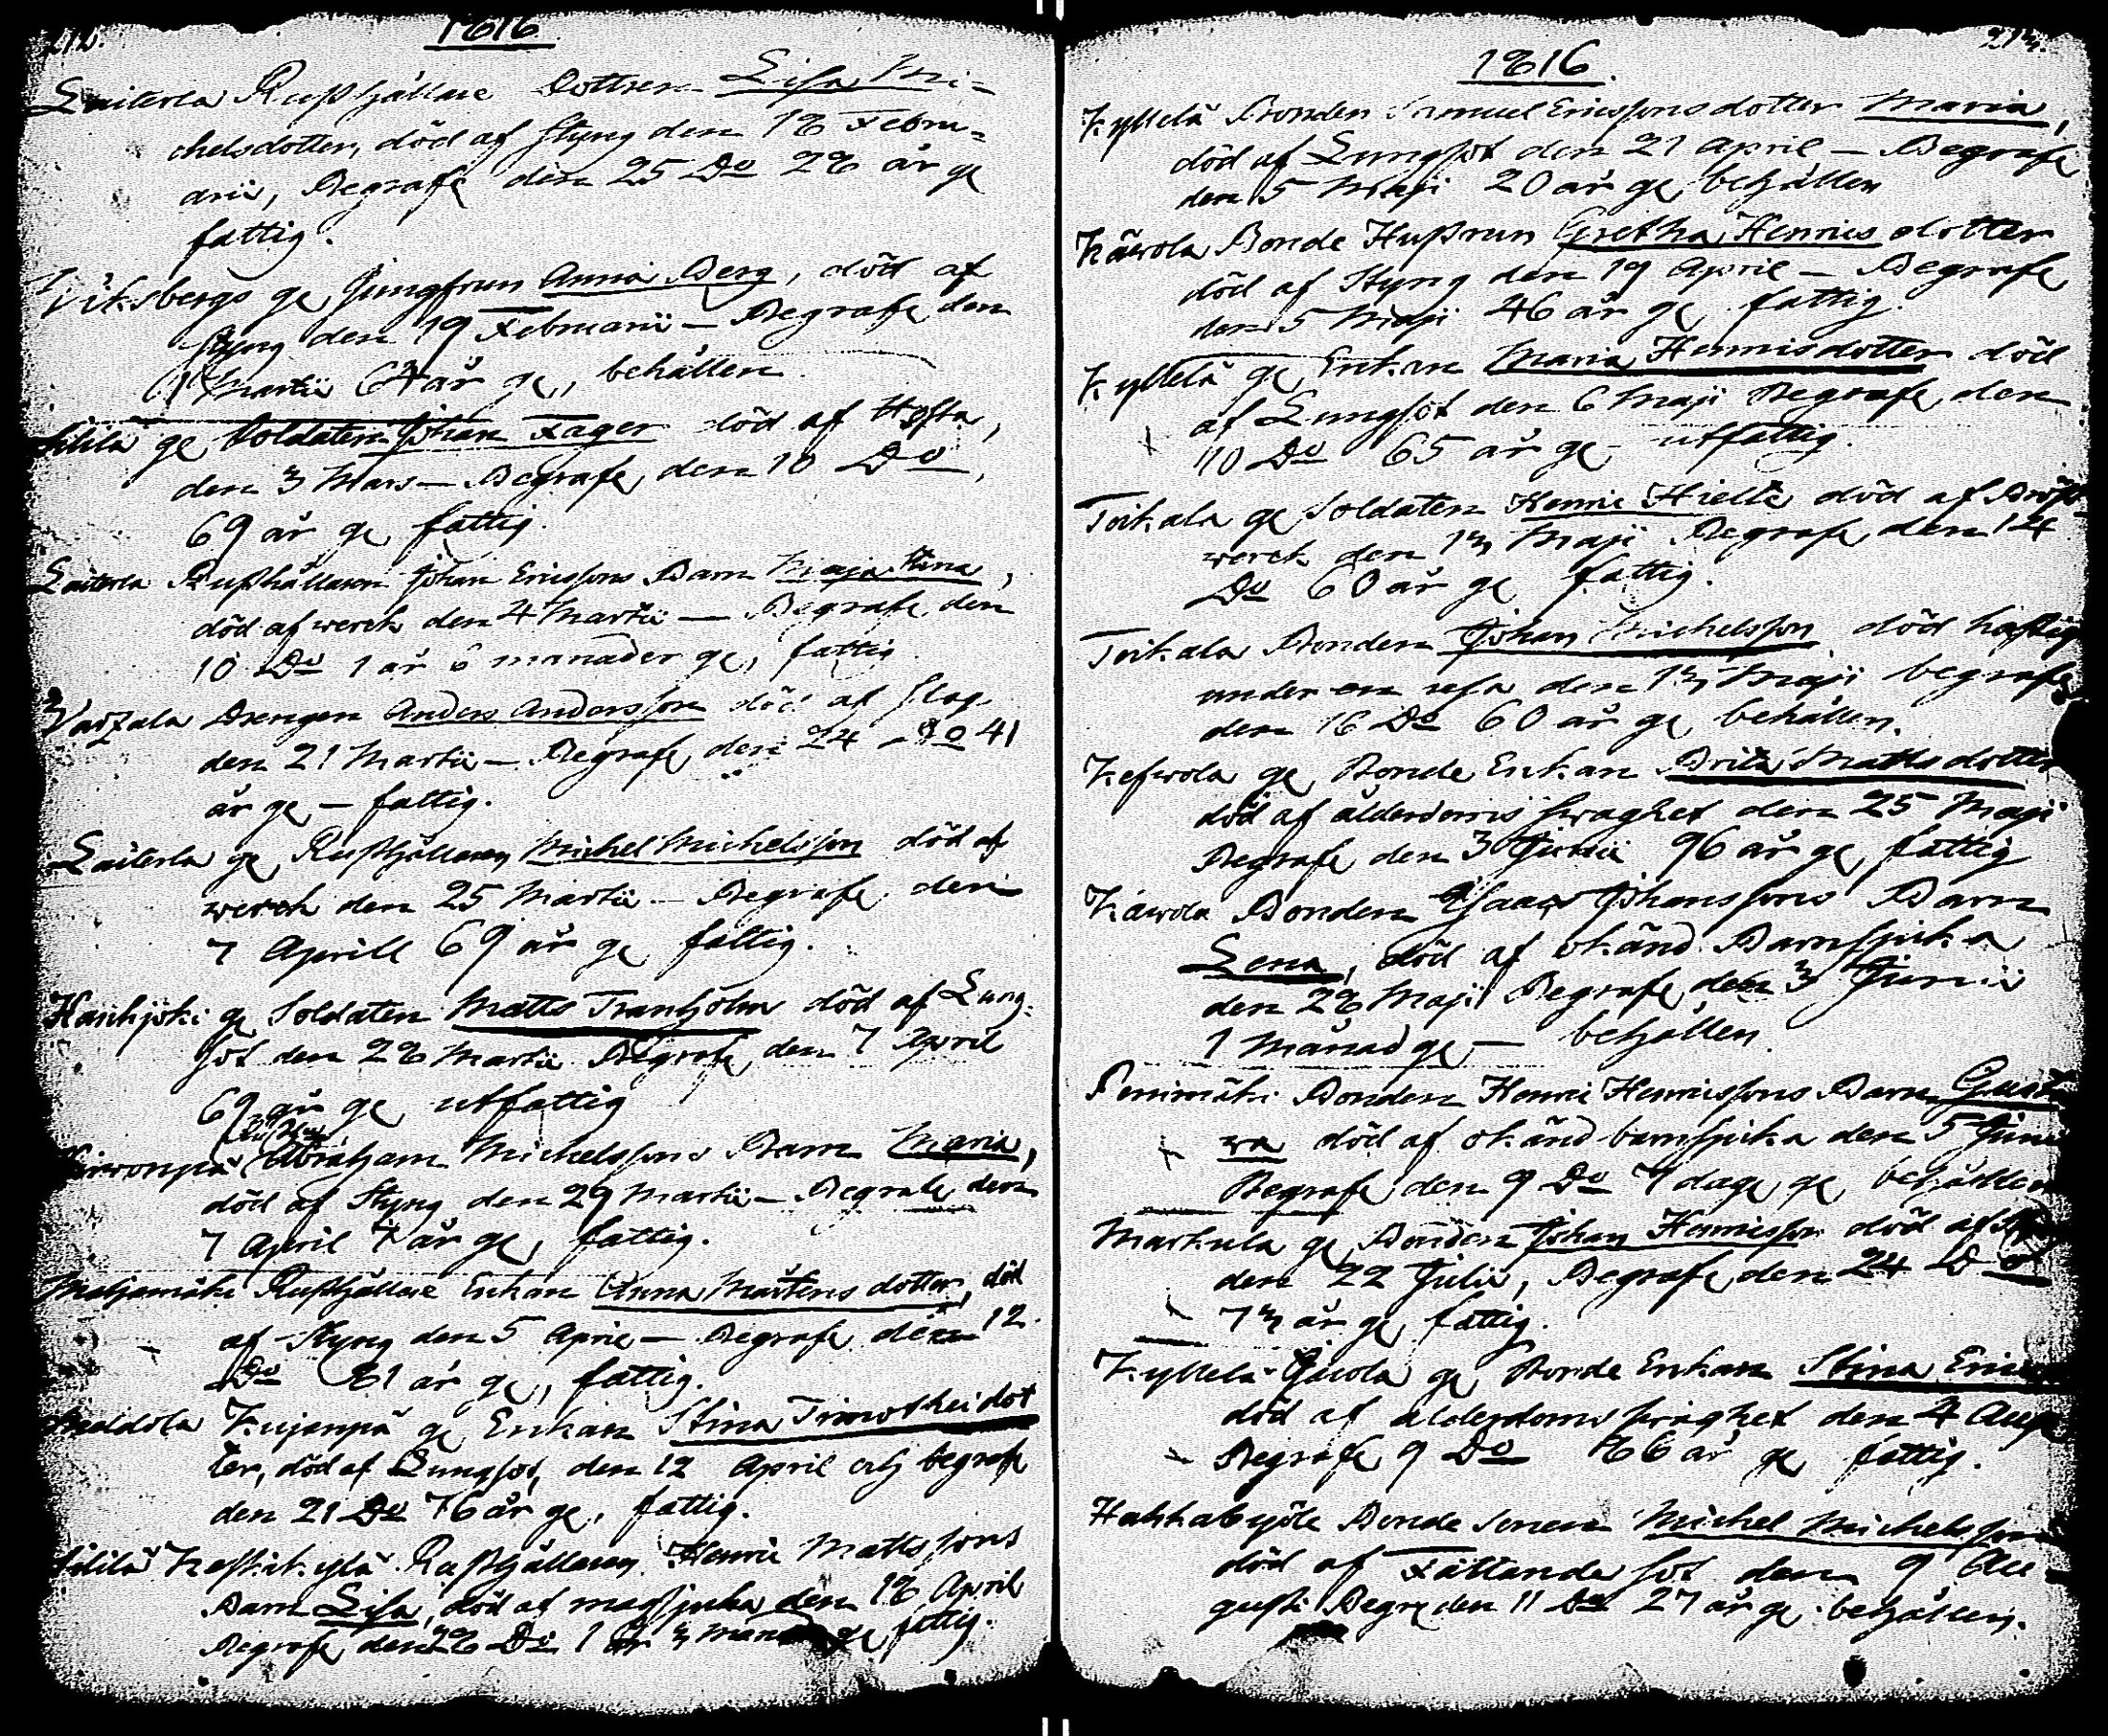 212.
1816
Laiterla Rußhjållare Dottren Lisa Mi-
chelsdotter, död af styng den 18 Febru=
arii, Begrafe den 25 Do 28 år ge
fattig.
Wiksbergs ge Jungfrun Anna Berg, död af
styng den 19 Februarii – Begrafe den
Martii 64 år ge, behållen
ge Soldaten Johan Fager död af Hosta,
den 3 Mars – Begrafe den 10 Do,
69 år ge fattig.
Laiterla Rußhållaren Johan Ericssons Barn Maja Stina,
död af werck den 4 Martii – Begrafe den
10 Do 1 år 6 månader ge, fattig
Drengen Anders Andersson död af slag
den 21 Martii – Begrafe den 24 – Do 41
år ge – fattig.
Laiterla ge Rußhjållaren Michel Michelsson död af
werck den 25 Martii – Begrafe den
7 Aprill 69 år ge fattig.
ge Soldaten Matts Tranholm död af Lung-
sot den 28 Martii Begrafe den 7 April
69 år ge utfattig
Abraham Michelssons Barn Maria,
död af Styng den 29 Martii – Begrafe den
7 April 4 år ge, fattig.
Rußhjållare Enkan Anna Mårtens dotter, död
af Styng den 5 April – Begrafe den 12
Do 81 år ge, fattig.
Kujanpä ge Enkan Stina Timothei dot
ter, död af Lungsot, den 12 April och begrafe
den 21 Do 76 år ge, fattig.
Keskikylä Rußhjållaren Henric Mattssons
Barn Lisa, död af massjuka den 18 April
Begrafe den 28 Do 1 år 3 mån ge fattig.
213.
1816.
Kyllelä Bonden Samuel Ericssons dotter Maria,
död af Lungsot den 21 April – Begrafe
den 5 Maji 20 år ge behållen
Käwola Bonde Hustrun Gretha Henrics dotter
död af Styng den 19 April – Begrafe
den 5 Maji 46 år ge fattig.
Kyllelä ge Enkan Maria Henricsdotter död
af Lungsot den 6 Maji Begrafe den
10 Do 65 år ge – utfattig.
Toikala ge Soldaten Henric Hielte död af Bröst-
werck den 13 Maji Begrafe den 14
Do 60 år ge fattig.
Toikala Bonden Johan Michelsson död hastig
under en resa den 13 Maji begrafe
den 16 Do 60 år ge behållen.
ge Bonde Enkan Brita Matts dotter
död af ålderdoms swaghet den 25 Maji
Begrafe den 3 Junii 96 år ge fattig
Käwola Bonden Isaac Johanssons Barn
Lena, död af okänd Barnsjuka
den 28 Maji Begrafe den 3 Junii
1 Månad ge – behållen.
Penimäki Bonden Henric Henricssons Barn Gusta
wa död af okänd barnsjuka den 5 Juni
Begrafe den 9 Do 7 dage ge behållen
Markula ge Bonden Johan Henricsson död af
den 22 Julii, Begrafe den 24 Do
73 år ge fattig.
Kyllelä ge Bonde Enkan Stina
död af ålderdoms swaghet den 4 Aug
Begrafe 9 Do 86 år ge fattig.
Bonde sonen Michel Michelsson
död af Fallande sot den 9 Au
gusti Begr den 11 Do 27 år ge behållen.